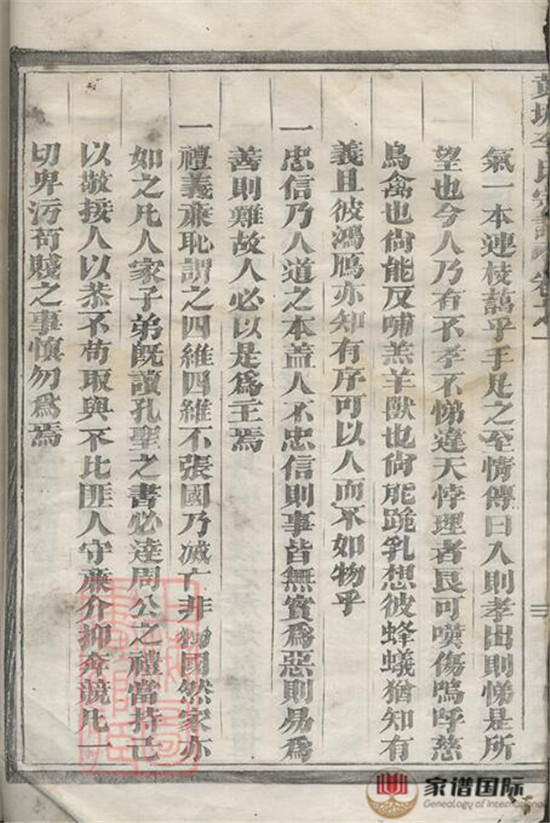 黄城李氏宗譜卷之一
氣一本連枝藹乎手足之至情傳曰入則孝出則悌是所
望也今人乃有不孝不悌違天悖理者良可嘆傷嗚呼慈
鳥禽也尙能反哺羔羊獸也尙能跪乳想彼蜂蟻猶知有
義且彼鴻鴈亦知有序可以人而不如物乎
一忠信乃人道之本盖人不忠信則事皆無實爲惡則易爲
善則難故人必以是爲主焉
一禮義亷恥謂之四維四維不張國乃滅亡非獨國然家亦
如之凡人家子弟旣讀孔聖之書必逹周公之禮當持己
以敬接人以恭不苟取與不比匪人守亷介抑奔競凡一
切卑污苟賤之事慎勿爲焉
家谱国际
Genealogy of International